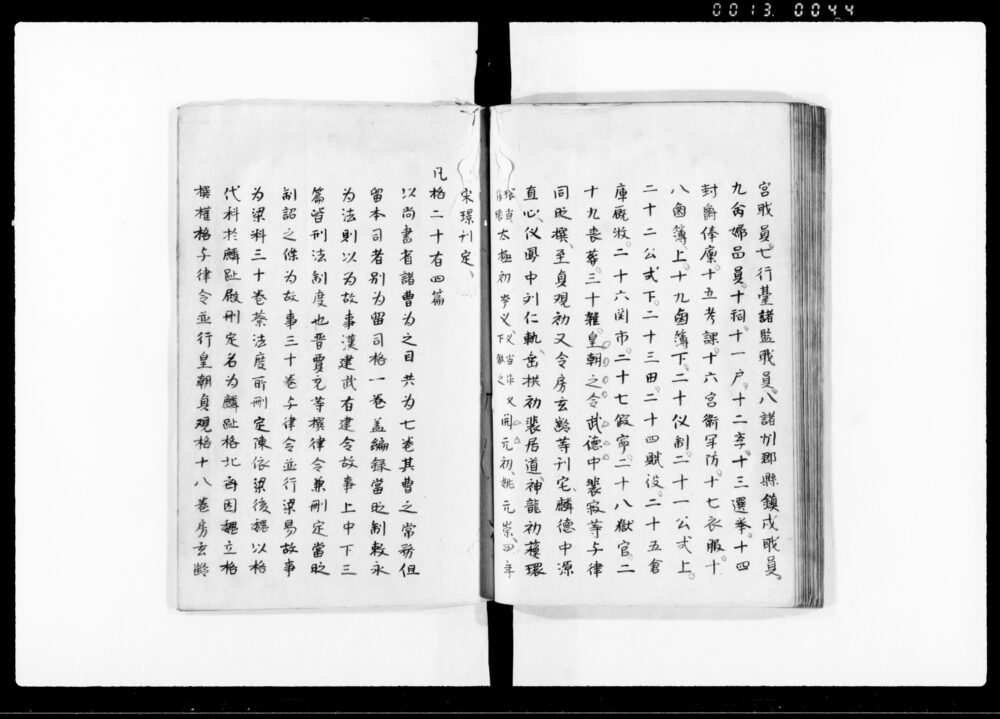 0013.0044
宮職員七行臺諸監職員八諸州郡縣鎮戍職員
九命婦品員十祠十一户十二李十三選挙十四
封爵俸廩十五考課十六宮衛軍防十七衣服十
八鹵簿上十九鹵簿下二十仪制二十一公式上
二十二公式下二十三田二十四賦役二十五倉
庫厩牧二十六関市二十七假寧二十八獄官二
十九喪葬三十雜皇朝之令武德中裴寂等与律
同时撰至貞观初又令房玄齡等刊定麟德中源
直心仪鳳中刘仁軌垂拱初裴居道神龍初蘓瓌
太極初岑义下叙之义当作乂開元初姚元崇四年
宋璟刊定
凡格二十有四篇
以尚書省諸曹为之目共为七卷其曹之常務但
留本司者别为留司格一卷盖編録當时制敕永
为法則以为故事漢建武有建令故事上中下三
篇皆刑法制度也晋賈充等撰律令兼刪定當时
制詔之條为故事三十卷与律令並行梁易故事
为梁科三十卷蔡法度所刪定陳依梁後魏以格
代科於麟趾殿刪定名为麟趾格北齐因魏立格
撰權格与律令並行皇朝貞观格十八卷房玄齡